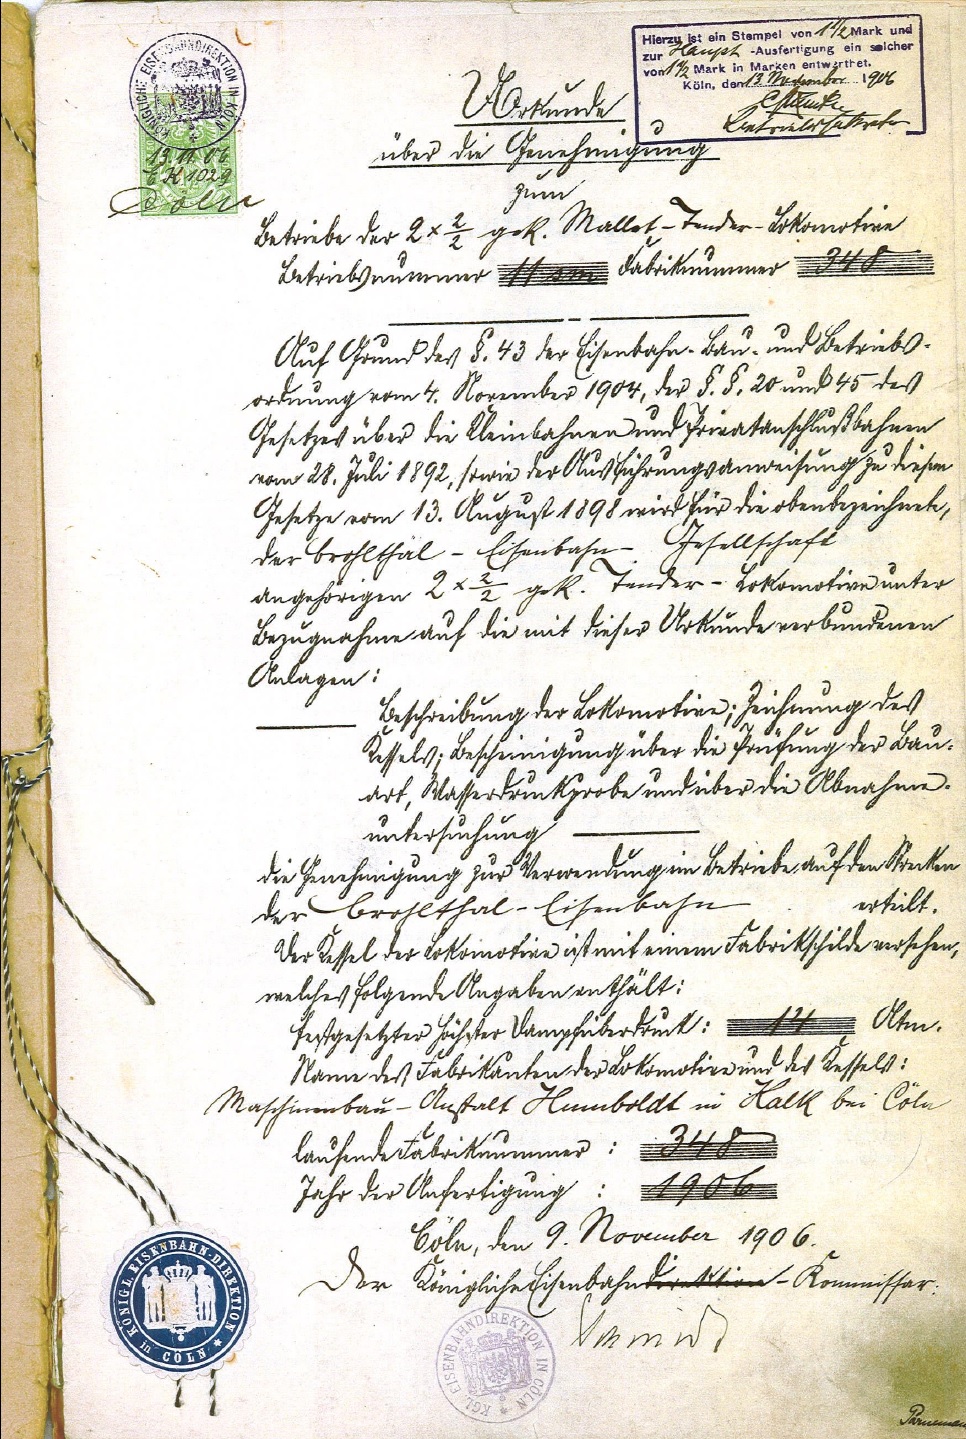 KÖNIGLICHE EISENBAHNDIREKTION IN KÖLN
13.11.06
6 K 1029
Cöln
Hierzu ist ein Stempel von 1 1/2 Mark und
zur Haupt-Ausfertigung ein solcher
von 1 1/2 Mark in Marken entwerthet.
Köln, den 13 November 1906
Betriebssekretär
Urkunde
über die Genehmigung
zum
Betriebe der 2 × 2/2 gek. Mallet-Tender-Lokomotive
Betriebsnummer 11 sm Fabriknummer 348
Auf Grund des §. 43 der Eisenbahn-Bau- und Betriebs-
ordnung vom 4. November 1904, der §.§. 20 und 45 des
Gesetzes über die Kleinbahnen und Privatanschlußbahnen
vom 28. Juli 1892, sowie der Ausführungsanweisung zu diesem
Gesetze vom 13. August 1898 wird für die obenbezeichnete,
der Brohlthal-Eisenbahn-Gesellschaft
angehörigen 2 × 2/2 gek. Tender-Lokomotive unter
Bezugnahme auf die mit dieser Urkunde verbundenen
Anlagen:
Beschreibung der Lokomotive; Zeichnung des
Kessels; Bescheinigung über die Prüfung der Bau-
art, Wasserdruckprobe und über die Abnahme-
untersuchung
die Genehmigung zur Verwendung im Betriebe auf den Strecken
der Brohlthal-Eisenbahn erteilt.
Der Kessel der Lokomotive ist mit einem Fabrikschilde versehen,
welches folgende Angaben enthält:
festgesetzter höchster Dampfüberdruck: 14 Atm.
Name des Fabrikanten der Lokomotive und des Kessels:
Maschinenbau-Anstalt Humboldt in Kalk bei Cöln
laufende Fabriknummer: 348
Jahr der Anfertigung: 1906
Cöln, den 9. November 1906.
Der Königliche Eisenbahndirektion-Kommissar:
Schmidt
KÖNIGL. EISENBAHN-DIREKTION in CÖLN
KGL. EISENBAHNDIREKTION IN CÖLN